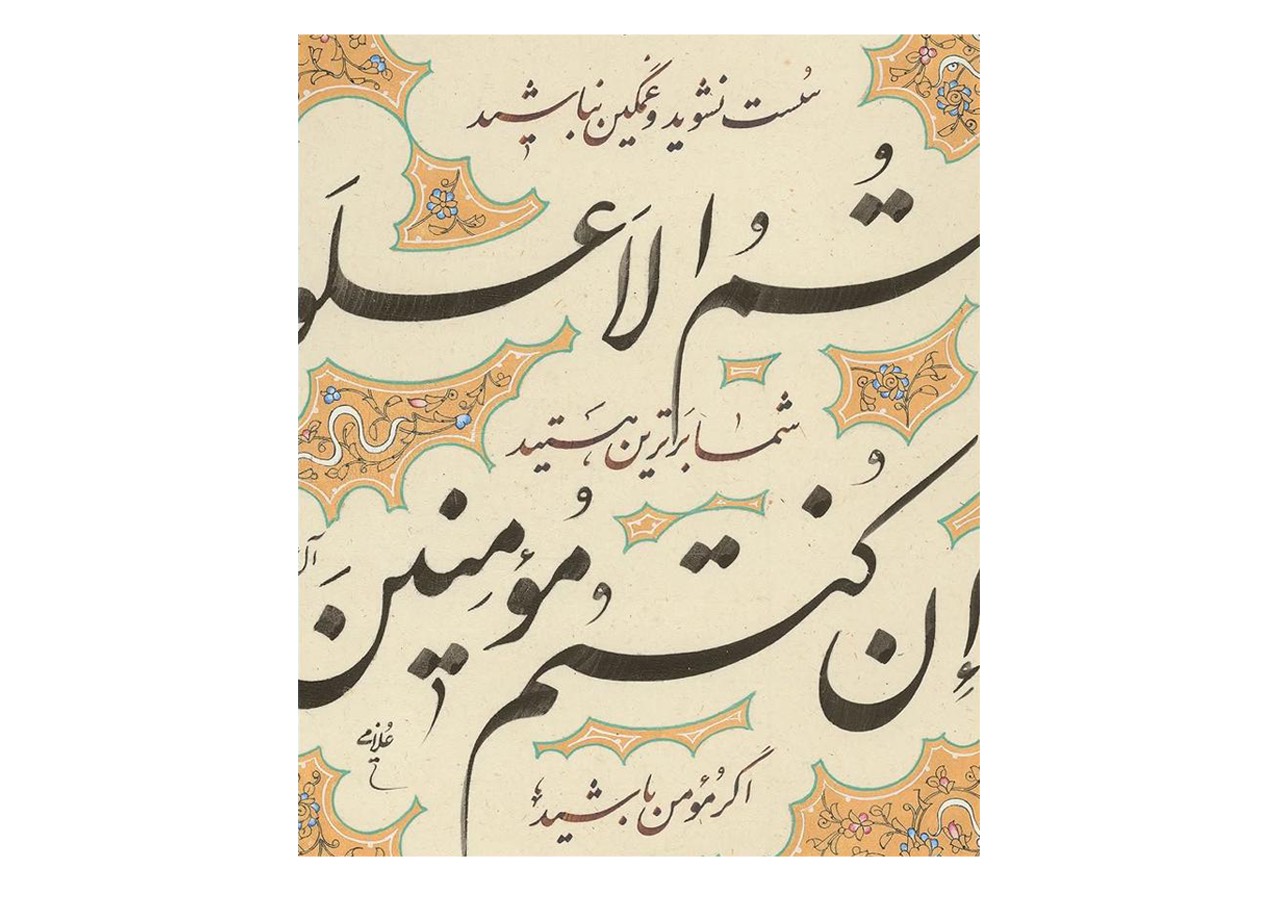 سُست نشوید و غمگین نباشید
تُمُ الاَعلَو
شما برترین هستید
إِن کُنتُم مُؤمِنینَ
اگر مُؤمن باشید
غلامی